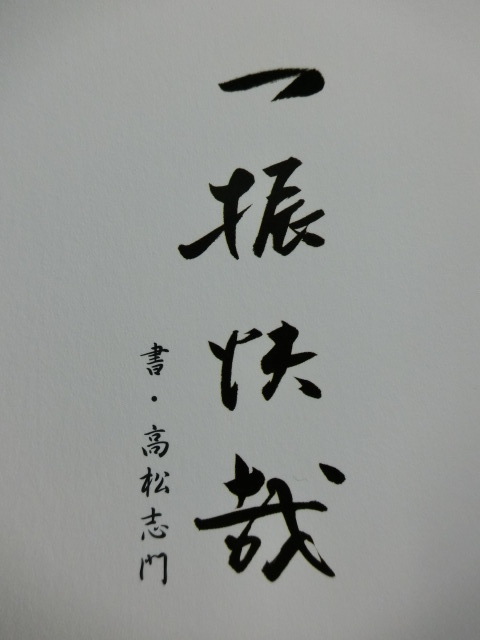 一振快哉
書・高松志門